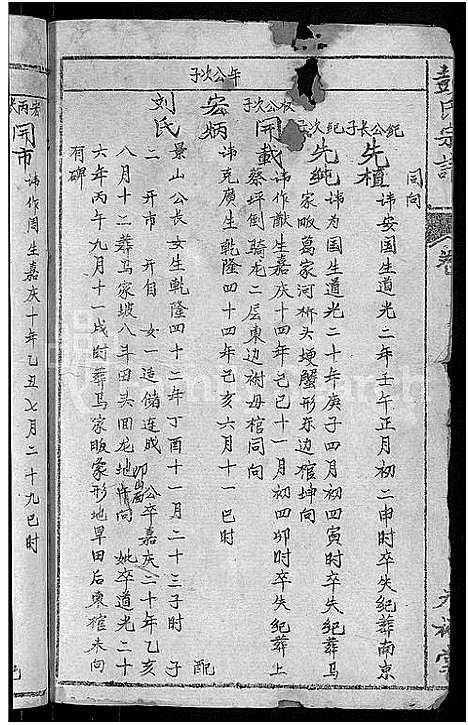 彭氏宗譜
卷
光裕堂
同向
纪公长子
先植
讳安国生道光二年壬午正月初二申时卒失纪葬南京
纪次子
先纯
讳为国生道光二十年庚子四月初四寅时卒失纪葬马
家畈葛家河桥头埂蟹形东边棺坤向
权公次子
開載
讳作猷生嘉庆十四年己巳十一月初四卯时卒失纪葬上
蔡坪倒骑龙二层東边祔母棺同向
年公次子
宏炳
讳克廣生乾隆四十四年己亥六月十一巳时
配
刘氏
景山公长女生乾隆四十二年丁酉十一月二十三子时 子
二 开市 开自 女一造储连成 公卒嘉庆二十年乙亥
八月十二葬马家坡八斗田头回龙地 向 妣卒道光二十
六年丙午九月十一戌时葬马家畈象形地旱田后東棺未向
有碑
宏丙长
開市
讳作周生嘉庆十年乙丑七月二十九巳时